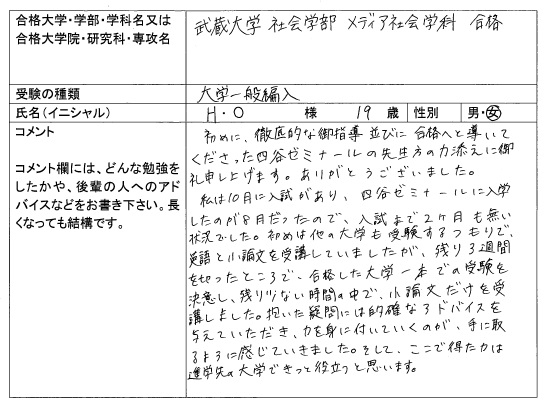 合格大学・学部・学科名又は
合格大学院・研究科・専攻名
武蔵大学 社会学部 メディア社会学科 合格
受験の種類
大学一般編入
氏名（イニシャル）
H・O 様 19 歳 性別 男・女
コメント
コメント欄には、どんな勉強を
したかや、後輩の人へのアド
バイスなどをお書き下さい。長
くなっても結構です。
初めに、徹底的な御指導並びに合格へと導いて
くださった四谷ゼミナールの先生方の力添えに御
礼申し上げます。ありがとうございました。
私は10月に入試があり、四谷ゼミナールに入学
したのが8月だったので、入試まで2ヶ月も無い
状況でした。初めは他の大学も受験するつもりで、
英語と小論文を受講していましたが、残り3週間
を切ったところで、合格した大学一本での受験を
決意し、残り少ない時間の中で、小論文だけを受
講しました。抱いた疑問には的確なアドバイスを
与えていただき、力を身に付いていくのが、手に取
るように感じていきました。そして、ここで得た力は
進学先の大学できっと役立つと思います。